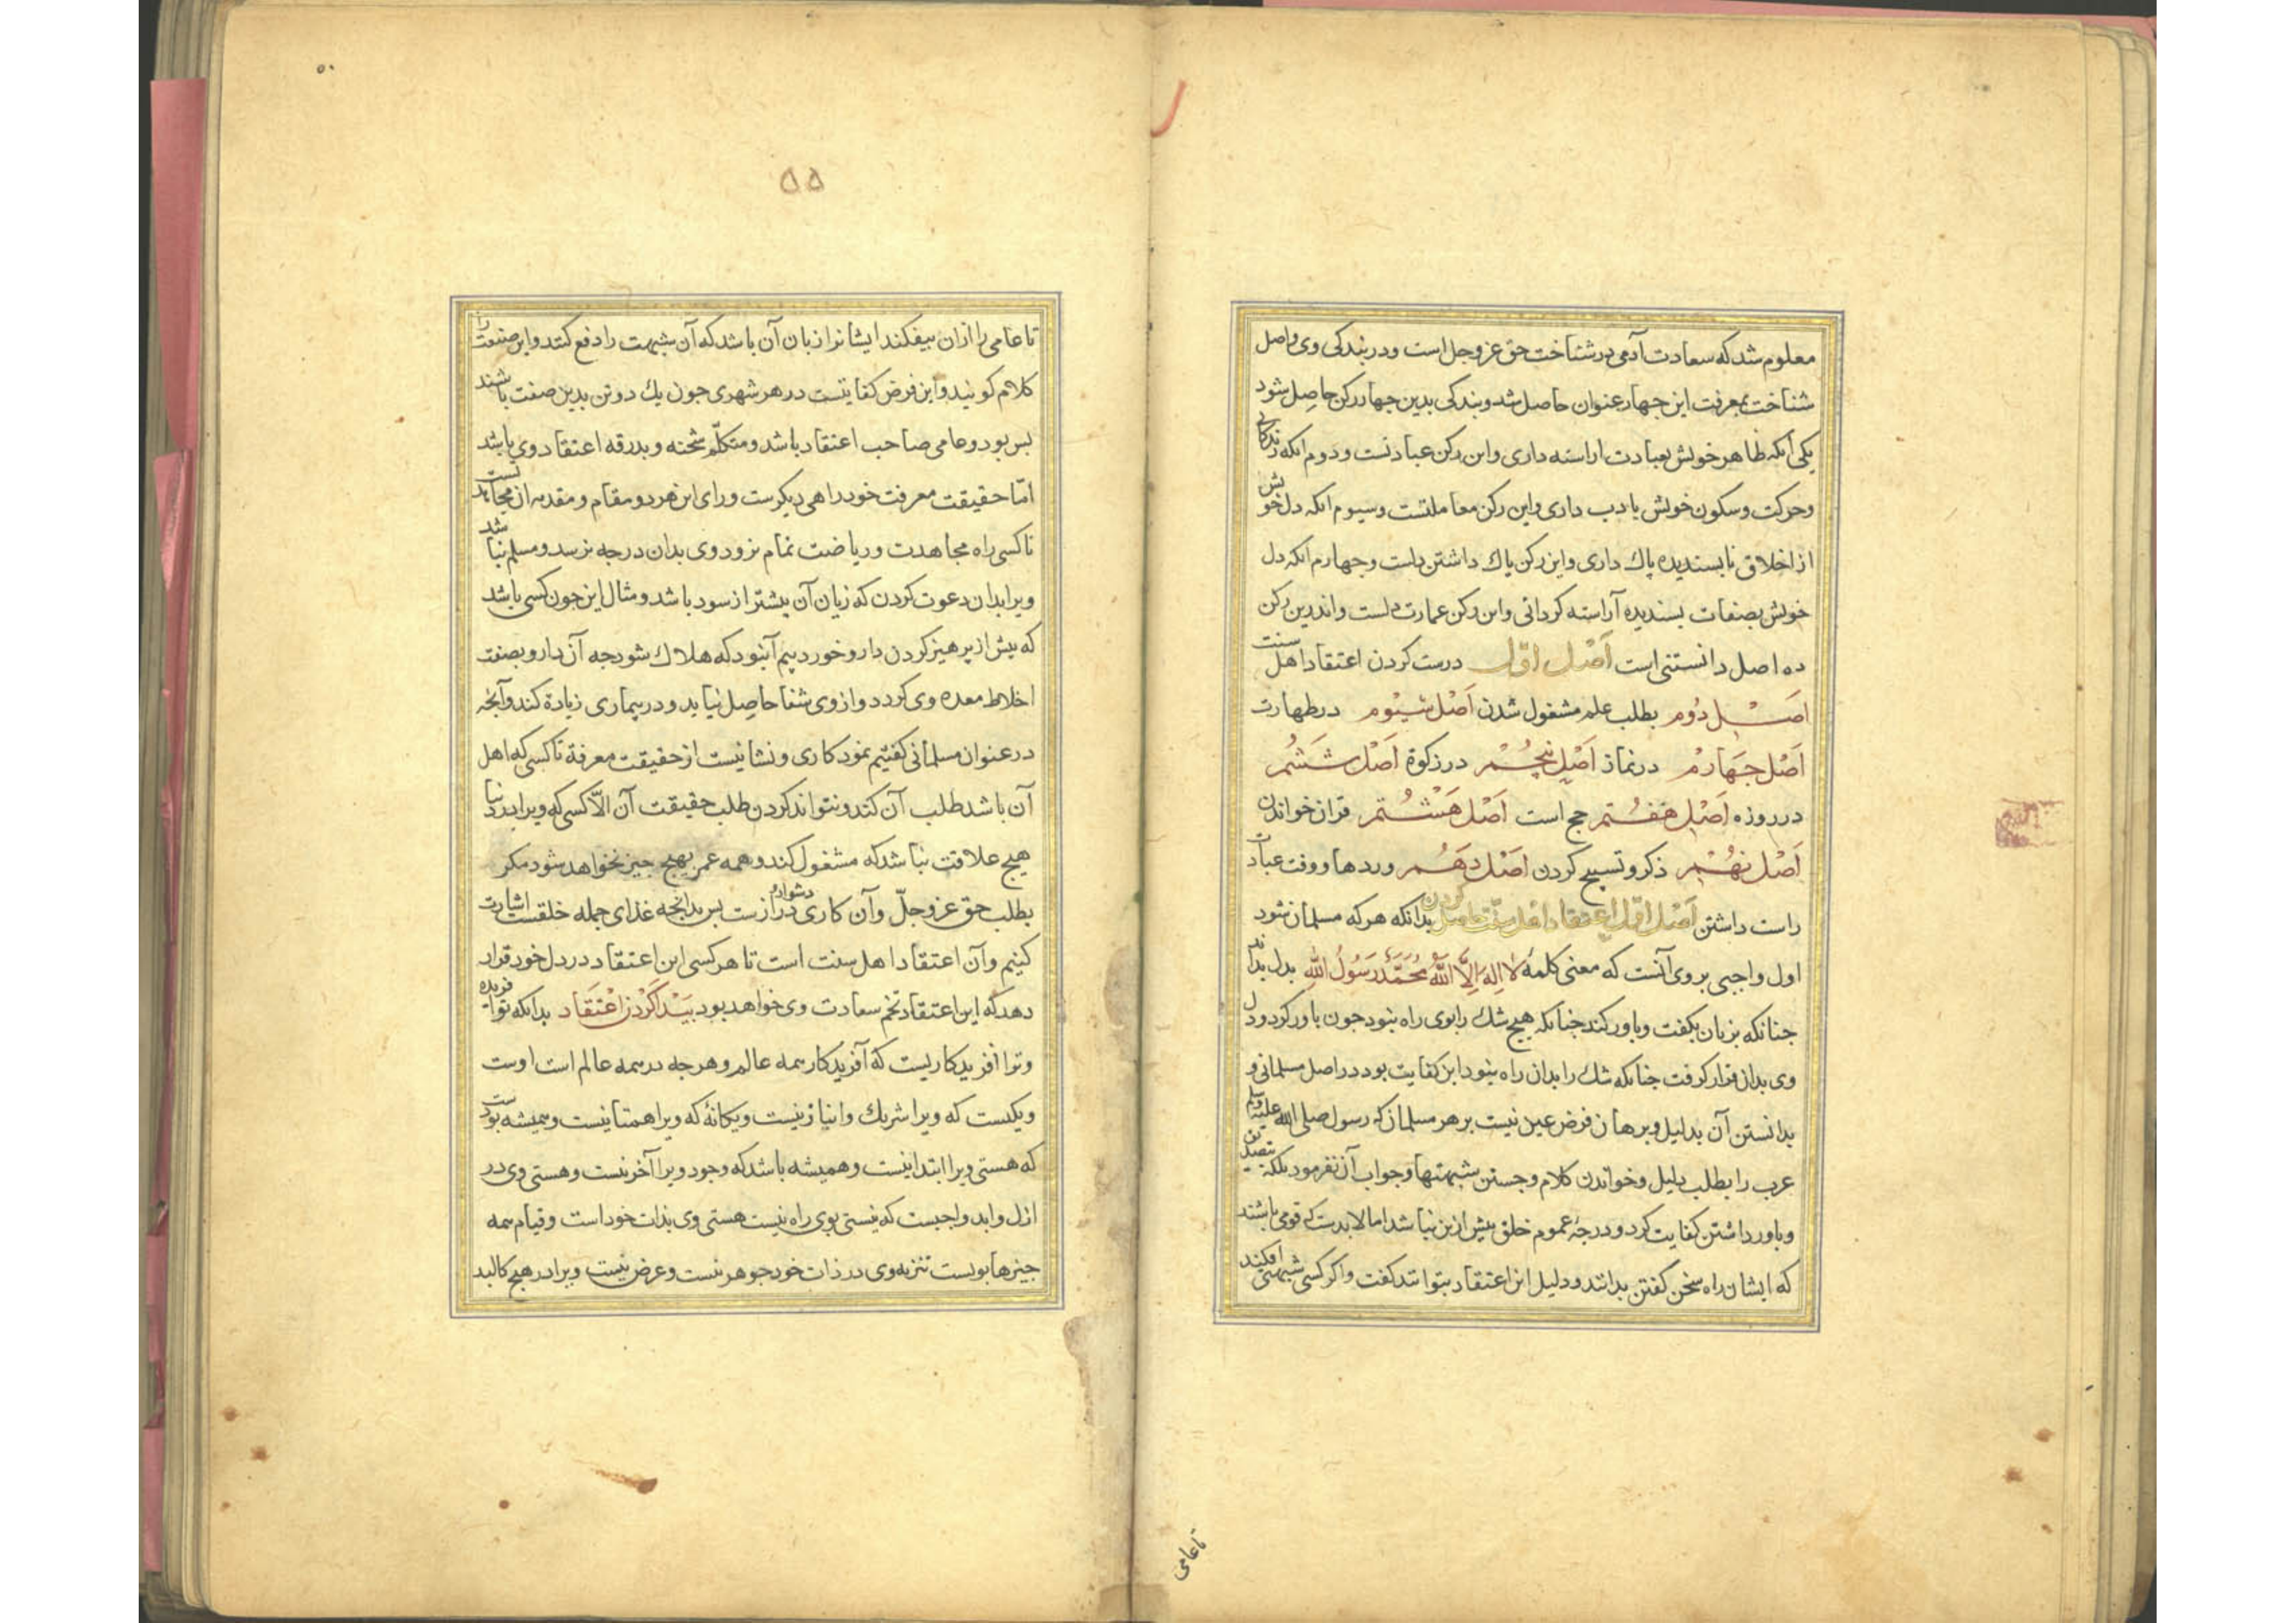 معلوم شد که سعادت آدمی در شناخت حق عز وجل است ودر بندکی وی واصل
شناخت بمعرفت این جهار عنوان حاصل شد وبندکی بدین جهار رکن حاصل شود
یکی آنکه ظاهر خویش بعبادت اراسته داری واین رکن عباداتست ودوم انکه زندکانی
وحرکت وسکون خویش بادب داری واین رکن معاملتست وسیوم انکه دل خویش
از اخلاق نابسندیده پاك داری واین رکن پاك داشتن دلست وجهارم انکه دل
خویش بصفات بسندیده آراسته کردانی واین رکن عمارت دلست واندرین رکن
ده اصل دانستنی است اَصْل اوّل درست کردن اعتقاد اهل سنت
اَصْل دُوم بطلب علم مشغول شدن اَصْل سیُوم در طهارت
اَصْل جَهارمْ در نماز اَصْل پنجُمْ در زکوة اَصْل شَشُمْ
در روزه اَصْل هَفتُمْ حج است اَصْل هَشْتُمْ قران خواندن
اَصْل نهُمْ ذکر وتسبیح کردن اَصْل دَهُمْ وردها ووقت عبادات
راست داشتن اَصْل اوّل اعتقاد اهل سنّت حاصل کردن بدانکه هرکه مسلمان شود
اول واجبی بر وی آنست که معنی کلمهٔ لا اِلهَ اِلَّا اللّٰهُ مُحَمَّدٌ رَسُولُ اللّٰهِ بدل بداند
جنانکه بزبان بکفت وباور کند جنانکه هیج شك را بوی راه نبود جون باور کرد ودل
وی بدان قرار کرفت جنانکه شك را بدان راه نبود این کفایت بود در اصل مسلمانی و
بدانستن آن بدلیل وبرهان فرض عین نیست بر هر مسلمان که رسول صلی الله علیه وسلم
عرب را بطلب دلیل وخواندن کلام وجستن شبهتها وجواب آن نفرمود بلکه بتصدیق
وباور داشتن کفایت کرد ودرجهٔ عموم خلق بیش ازین نباشد اما لابدست که قومی باشند
که ایشان راه سخن کفتن بدانند ودلیل این اعتقاد بتوانند کفت واکر کسی شبهتی افکند
تاعامی
۵۰
۵۵
تا عامی را از ان بیفکند ایشانرا زبان آن باشد که آن شبهت را دفع کنند واین صنعت را
کلام کویند واین فرض کفایتست در هر شهری جون یك دو تن بدین صفت باشند
بس بود وعامی صاحب اعتقاد باشد ومتکلّم شحنه وبدرقه اعتقاد وی باشد
امّا حقیقت معرفت خود راهی دیکرست ورای این هر دو مقام ومقدمه ان مجاهدتست
تا کسی راه مجاهدت وریاضت تمام نرود وی بدان درجه نرسد ومسلم نباشد
ویرا بدان دعوت کردن که زیان آن بیشتر از سود باشد ومثال این جون کسی باشد
که بیش از برهیز کردن دارو خورد بیم آن بود که هلاك شود جه آن دارو بصفت
اخلاط معده وی کردد واز وی شفا حاصل نیاید ودر بیماری زیادة کند وآنجه
در عنوان مسلمانی کفتیم نمودکاری ونشانیست از حقیقت معرفة تا کسی که اهل
آن باشد طلب آن کند ونتواند کردن طلب حقیقت آن الّا کسی که ویرا بدنیا
هیج علاقت نباشد که مشغول کند وهمه عمر بهیج جیز نخواهد شود مکر
بطلب حق عز وجلّ وآن کاری دشوار ودرازست بس بدانجه غذای جمله خلقست اشارت
کنیم وآن اعتقاد اهل سنت است تا هر کسی این اعتقاد در دل خود قرار
دهد که این اعتقاد تخم سعادت وی خواهد بود بَیْدا کَرْدن اعْتِقاد بدانکه تو افریده
وترا افریدکاریست که آفریدکار همه عالم وهرجه در همه عالم است اوست
ویکیست که ویرا شریك وانباز نیست ویکانهٔ که ویرا همتا نیست وهمیشه بودست
که هستی ویرا ابتدا نیست وهمیشه باشد که وجود ویرا آخر نیست وهستی وی در
ازل وابد واجبست که نیستی بوی راه نیست هستی وی بذات خود است وقیام همه
جیزها بویست تنزیه وی در ذات خود جوهر نیست وعرض نیست ویرا در هیج کالبد